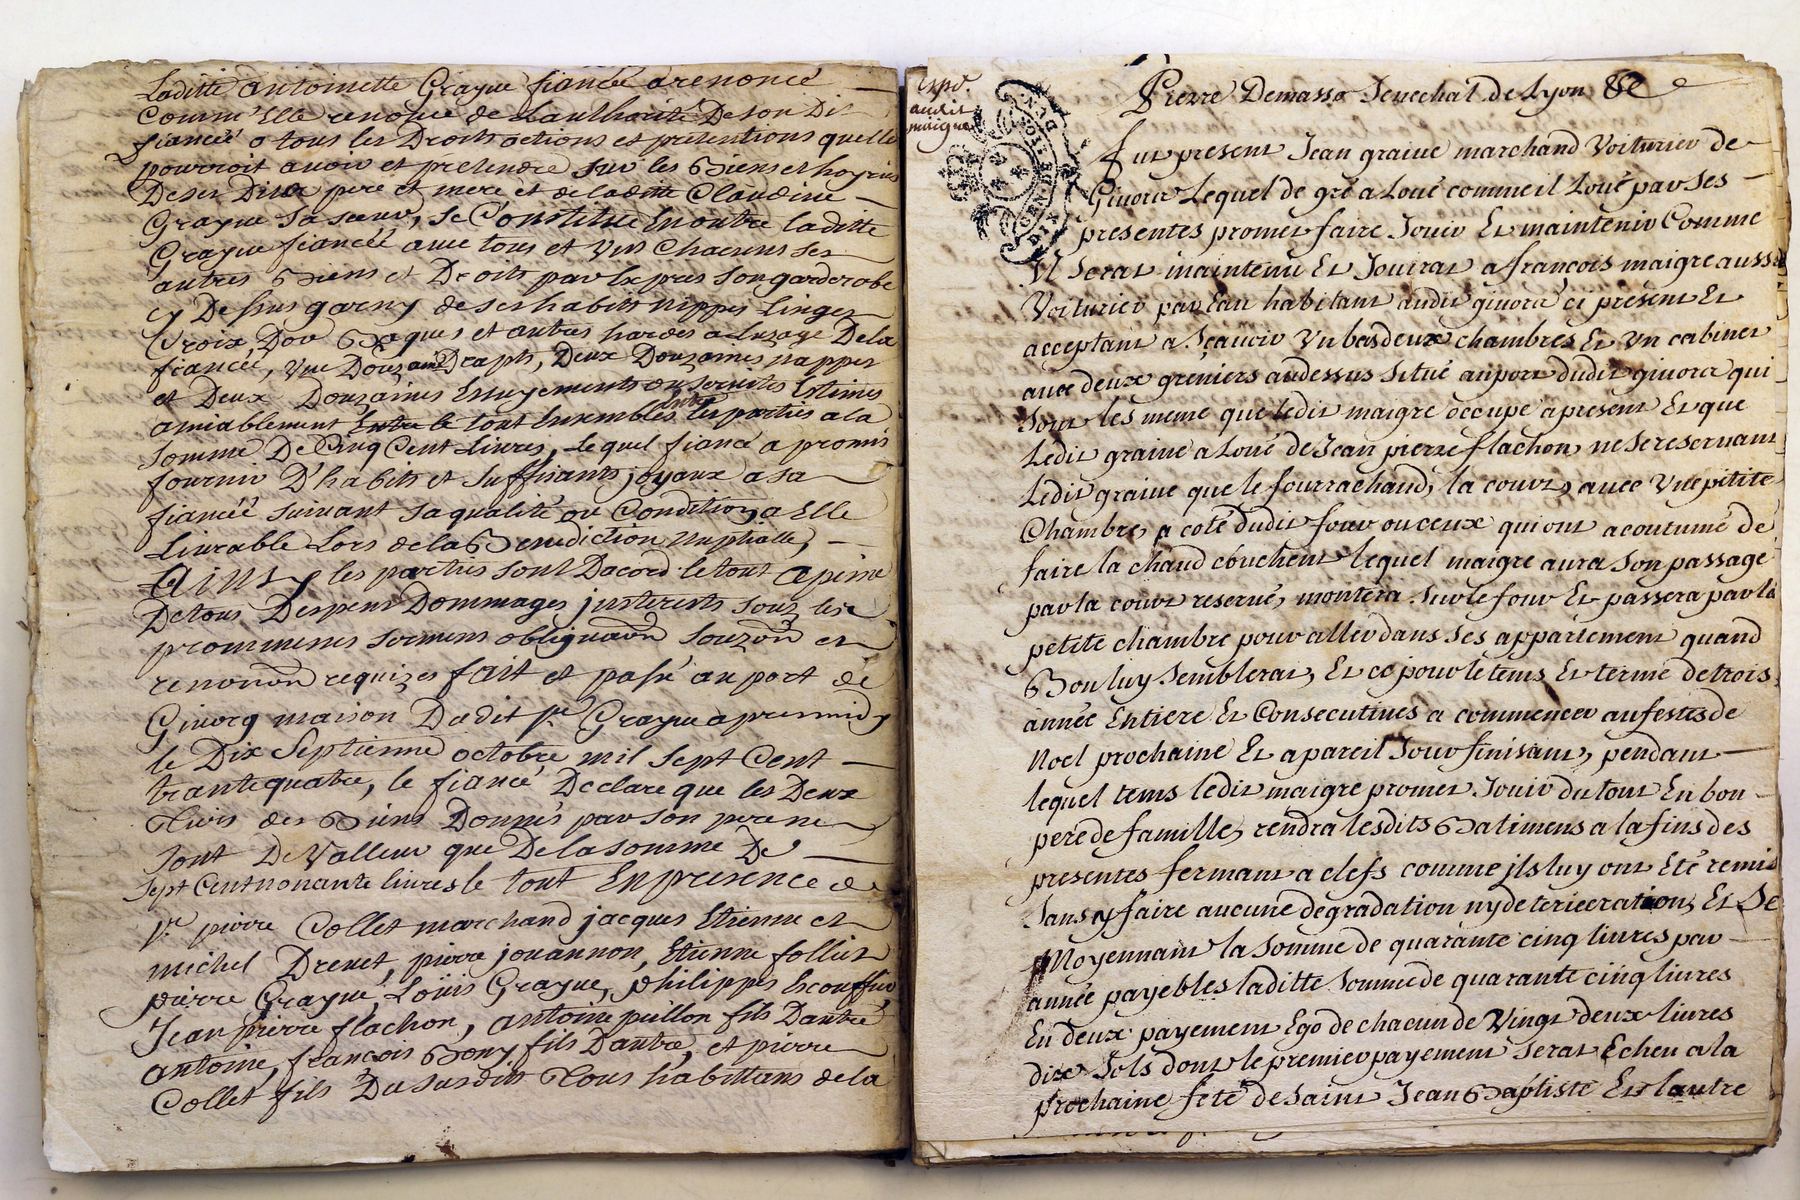 Laditte antoinette Grayue fiancée a renoncé
Comm'Elle renonce de Lauthorité De son Dit
fiancéé a tous les Droits actions et pretentions quelle
pourroit auoir et pretendre sur les Biens et hoyries
De ses Dits pere et mere et de laditte Claudine
Grayue sa soeur, se Constitue En outre laditte
Grayue fiancéé auec tous et Vns Chacuns ses
autres Biens et Droits par Expres son garderobe
cy Dessus garny de ses habits nippes Linges
Croix Dor Bagues et autres hardes a Luzage De la
fiancéé, Vne Douzaine Draps, Deux Douzaines nappes
et Deux Douzaines Essuyements ou seruites Estimés
amiablement Entre le tout Ensembles Entre les parties a la
somme De Cinq Cent Liures, Lequel fiancé a promis
fournir D'habits et suffisants joyaux a sa
fiancéé suiuant sa qualité ou Condition a Elle
Liurable Lors de la Benediction Nuptialle,
Ainsy les parties sont Dacord le tout a peine
De tous Despens Dommages jnterests sous les
promesses serments obligaon souzon et
renonon requizes fait et passé au port de
Giuorg maison Dudit sr Grayue apres midy
le Dix Septienne octobre mil sept Cent
trante quatre, le fiancé Declare que les Deux
Tiers des Biens Donnés par son pere ne
sont De Valleur que De la somme De
sept Cent nonante liures le tout En presence de
sr pierre Collet marchand jacques Etienne et
michel Dreuet, pierre jouannon, Etienne follier
pierre Grayue, Loüis Grayue, philippes
Jean pierre flachon, antoine pillon fils Dautre
antoine, françois Bony fils Dautre, et pierre
Collet fils Du susdit Tous habittans de la
Expé.
audit
maigre
GEN. DE LYON
Pierre Demasso Senechal de Lyon &c
Fut present Jean graiue marchand Voiturier de
Giuors Lequel de gré a Loué comme il Loué par ses
presentes promet faire Jouir Et maintenir Comme
Il Serat maintenu Et Jouirat a francois maigre aussi
Voiturier par Eau habitant audit giuors ci present Et
acceptant a Sçauoir Vn bas deux chambres Et Vn cabinet
auec deux greniers audessus situé au port dudit giuors qui
sont les meme que ledit maigre occupe apresent Et que
Ledit graiue a Loué de Jean pierre flachon ne se reseruant
Ledit graiue que le four a chaud, la cour, auec Vne pitite
Chambre, a coté dudit four ou ceux qui ont acoutumé de
faire la chaud couchent lequel maigre aura son passage
par la cour reserué, montera Sur le four Et passera par la
petite chambre pour aller dans ses appartement quand
Bon luy Semblerat, Et ce pour le tems Et terme de trois
année Entiere Et Consecutiues a commencer au festes de
Noel prochaine Et a pareil Jour finisant, pendant
lequel tems ledit maigre promet Jouir du tout En bon
pere de famille, rendra lesdits Batimens a la fins des
presentes fermant a clefs comme jls luy ont Eté remis
Sans y faire aucune degradation ny deterieration, Et Se
Moyennant la Somme de quarante cinq liures par
année payebles laditte Somme de quarante cinq liures
En deux payement Ego de chacun de Vingt deux liures
dix Sols dont le premier payement Serat Echeu a la
prochaine fete de Saint Jean Baptiste Et lautre